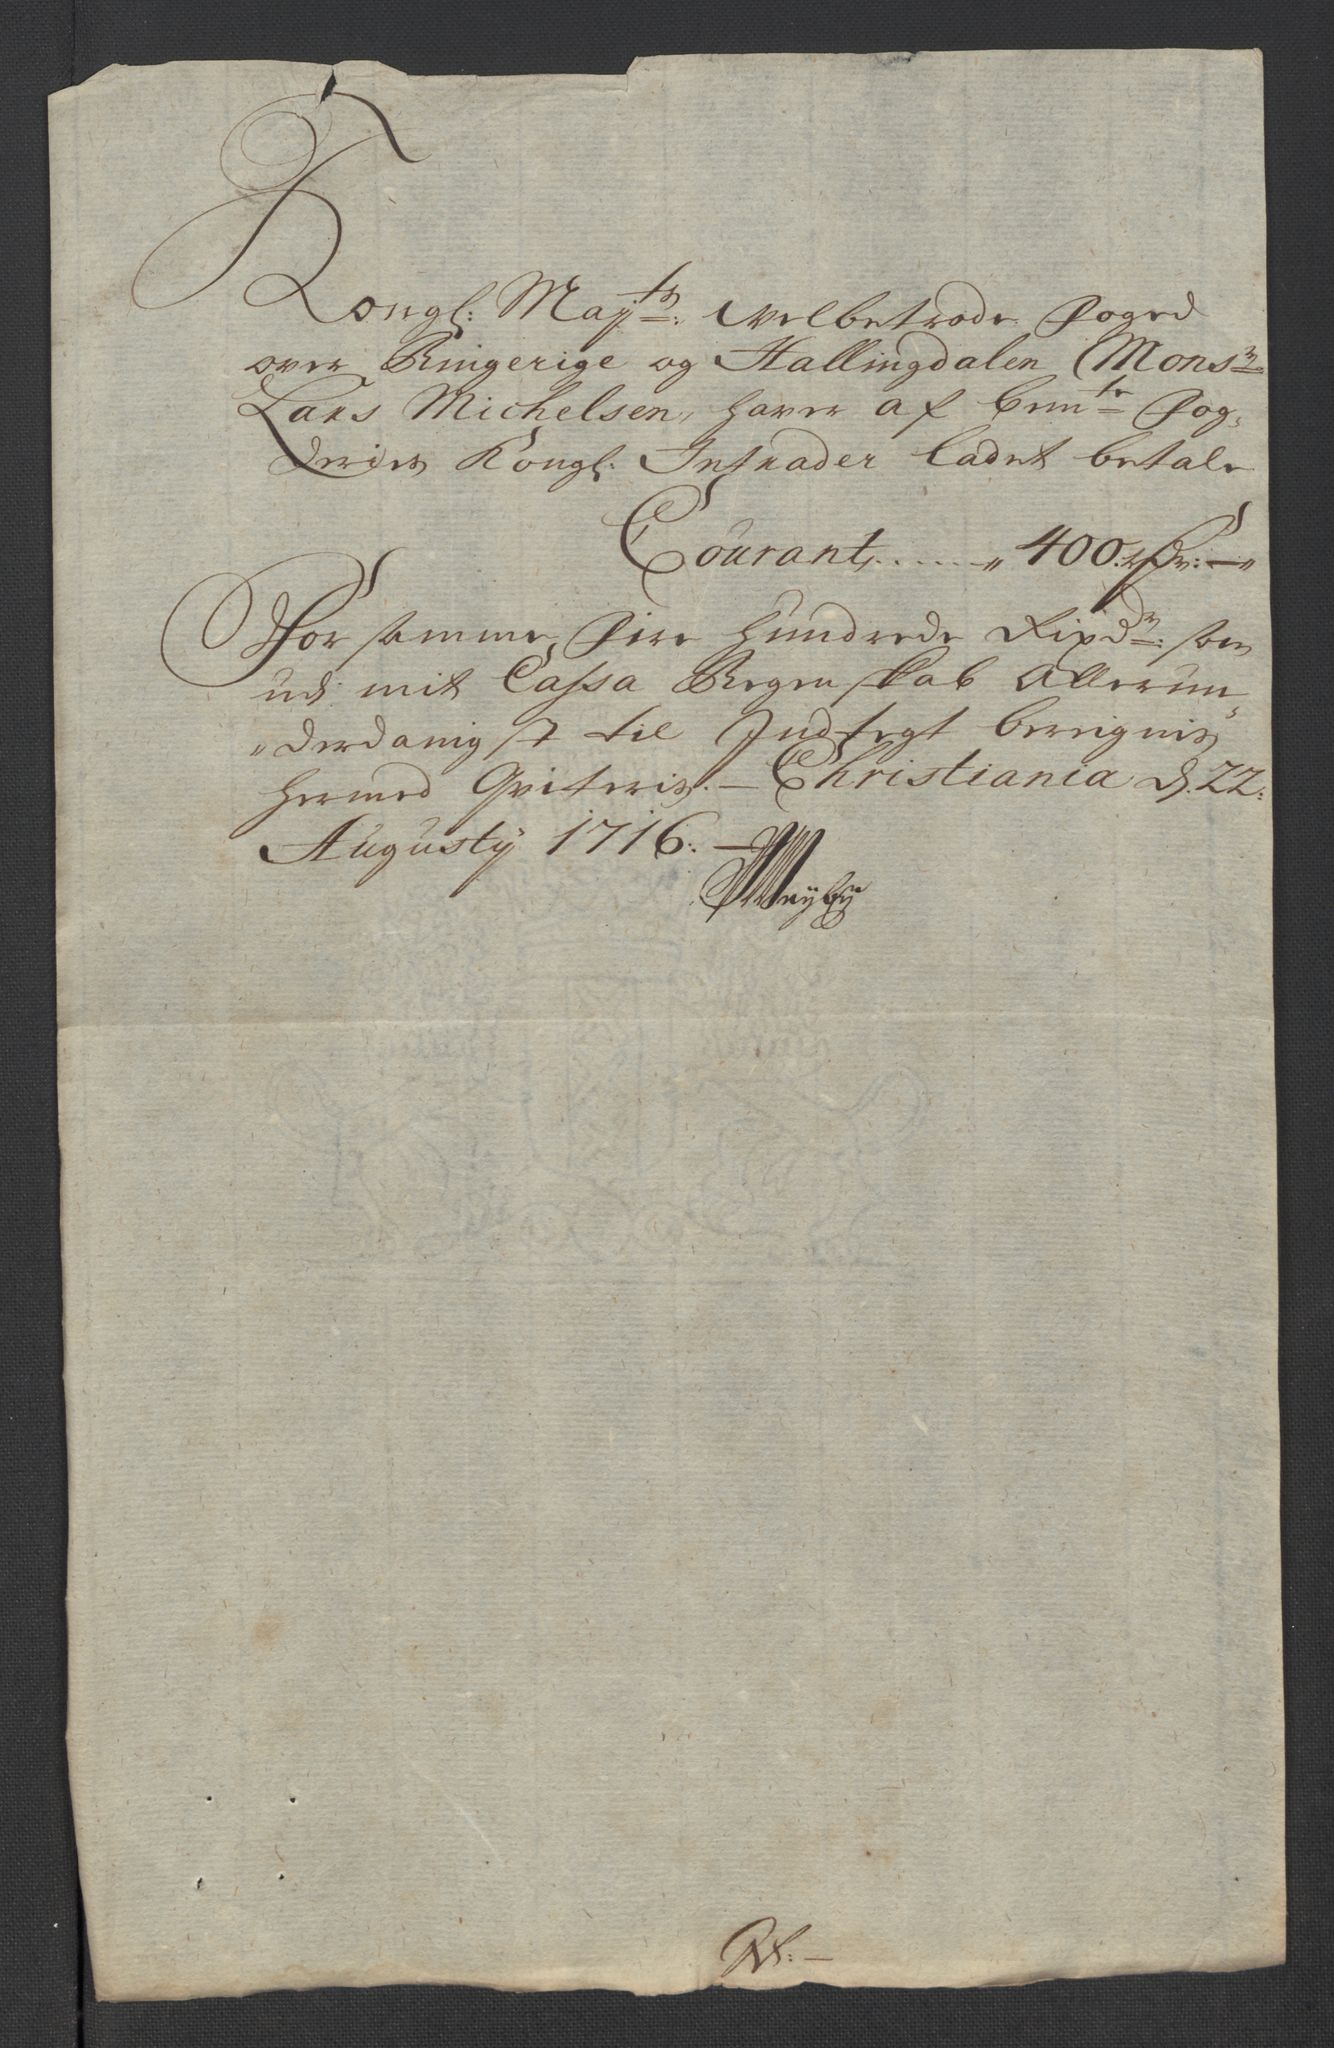 Kongl: Mayts: velbetrode Foged
over Ringerige og Hallingdalen Monsr
Lars Michelsen, haver af bemte Fog,
deries Kongl: Intrader ladet betale
Courant ..... 400 rdr: —
For samme Fire Hundrede Rixdr: som
ud mit Cassa Regenskab Allerun
derdanigst til Indtegt bereignis
hermed Qviteris. — Christiania d. 22:
Augustij 1716. —